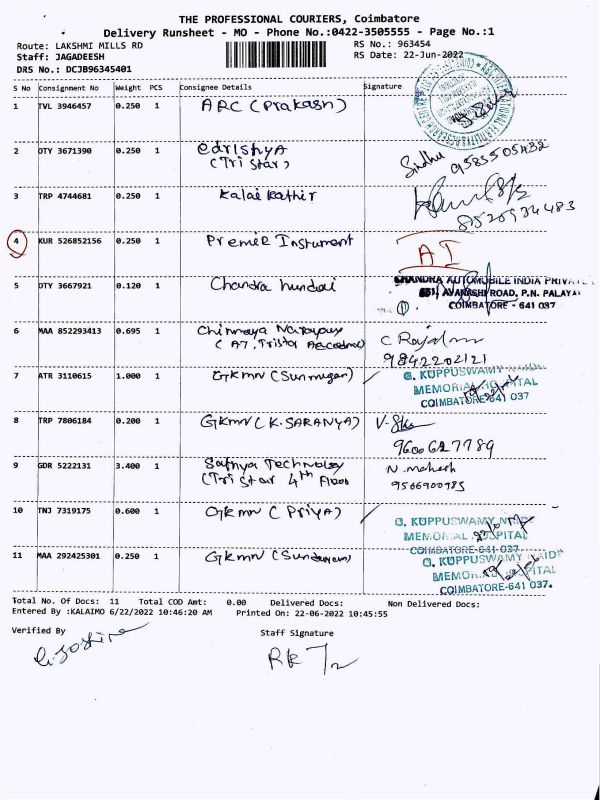 THE PROFESSIONAL COURIERS, Coimbatore
Delivery Runsheet - MO - Phone No.:0422-3505555 - Page No.:1
Route: LAKSHMI MILLS RD
RS No.: 963454
Staff: JAGADEESH
RS Date: 22-Jun-2022
DRS No.: DCJB96345401
S No Consignment No Weight PCS Consignee Details Signature
1 TVL 3946457 0.250 1 ARC (Prakash)
2 OTY 3671390 0.250 1 edrishyA
(Tri Star)
Sindhu
9585505432
3 TRP 4744681 0.250 1 Kalai Kathir
8526934483
4 KUR 526852156 0.250 1 Premier Instrument AI
5 OTY 3667921 0.120 1 Chandra hundai
CHANDRA AUTOMOBILE INDIA PRIVATE
AVANASHI ROAD, P.N. PALAYA
COIMBATORE - 641 037
6 MAA 852293413 0.695 1 Chinmaya Narayan
(A7, Tristar Accademy)
C Rajamm
9842202121
7 ATR 3110615 1.000 1 Gkmn (Sunmugan)
G. KUPPUSWAMY NAIDU
MEMORIAL HOSPITAL
COIMBATORE-641 037
8 TRP 7806184 0.200 1 Gkmn (K. SARANYA)
9600627789
9 GDR 5222131 3.400 1 Sathya Technology
(Tri Star 4th Floor
N. mahesh
9566900985
10 TNJ 7319175 0.600 1 Gkmn (Priya)
G. KUPPUSWAMY NAIDU
MEMORIAL HOSPITAL
COIMBATORE-641 037.
11 MAA 292425301 0.250 1 Gkmn (Sundaram)
G. KUPPUSWAMY NAIDU
MEMORIAL HOSPITAL
COIMBATORE-641 037.
Total No. Of Docs: 11 Total COD Amt: 0.00 Delivered Docs: Non Delivered Docs:
Entered By :KALAIMO 6/22/2022 10:46:20 AM Printed On: 22-06-2022 10:45:55
Verified By Staff Signature